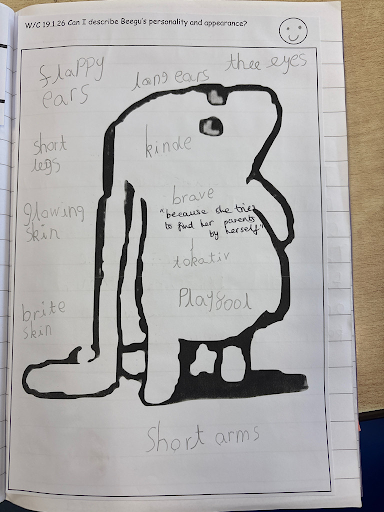 W/C 19.1.26 Can I describe Beegu's personality and appearance?
flappy
ears
long ears
thee eyes
short
legs
kinde
brave
"because she tries
to find her parents
by herself"
glowing
skin
tokativ
Playfool
brite
skin
Short arms